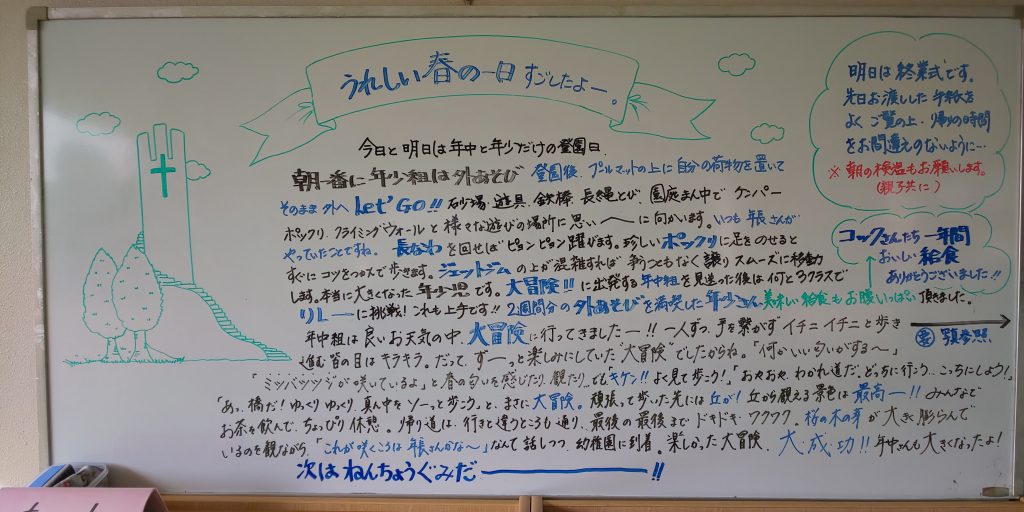 うれしい春の一日 すごしたよー。
今日と明日は年中と年少だけの登園日
朝一番に年少組は外あそび 登園後、プールマットの上に自分の荷物を置いて
そのまま外へ Let' GO!! 砂場、遊具、鉄棒、長縄とび、園庭まん中で ケンパー
ポックリ、クライミングウォールと様々な遊びの場所に思い〜に向かいます。いつも年長さんが
やっていたことですね。長なわを回せばピョンピョン躍びます。珍しいポックリに足をのせると
すぐにコツをつかんで歩きます。ジェットジムの上が混雑すれば争うこともなく譲りスムーズに移動
します。本当に大きくなった年少児です。大冒険!!に出発する年中組を見送った後は何と3クラスで
リレーに挑戦!これも上手です!!2週間分の外あそびを満喫した年少さん美味しい給食もお腹いっぱい頂きました。
年中組は良いお天気の中、大冒険に行ってきましたー!!一人ずつ手を繋がずイチニイチニと歩き
進む皆の目はキラキラ。だって、ずーっと楽しみにしていた"大冒険"でしたからね。「何かいい匂いがする〜」
「ミツバツツジが咲いているよ」と春の匂いを感じたり、観たり。でも「キケン!!よく見て歩こう!」「おやおや、わかれ道だ。どっちに行こう…こっちにしよう!」
「あっ、橋だ!ゆっくりゆっくり、真ん中をソーっと歩こう」と、まさに大冒険。頑張って歩いた先には丘が!丘から観える景色は最高ー!!みんなで
お茶を飲んで、ちょっぴり休憩。帰り道は、行きと違うところも通り、最後の最後までドキドキ・ワクワク。桜の木の芽が大きく膨らんで
いるのを観ながら、「これが咲くころは年長さんかな〜」なんて話しつつ、幼稚園に到着。楽しかった大冒険、大・成・功!!年中さんも大きくなったよ!
次はねんちょうぐみだー!!
明日は終業式です。
先日お渡しした手紙を
よくご覧の上、帰りの時間
をお間違えのないように…
※朝の検温もお願いします。
(親子共に)
コックさんたち一年間
おいしい給食
ありがとうございました!!
写真参照